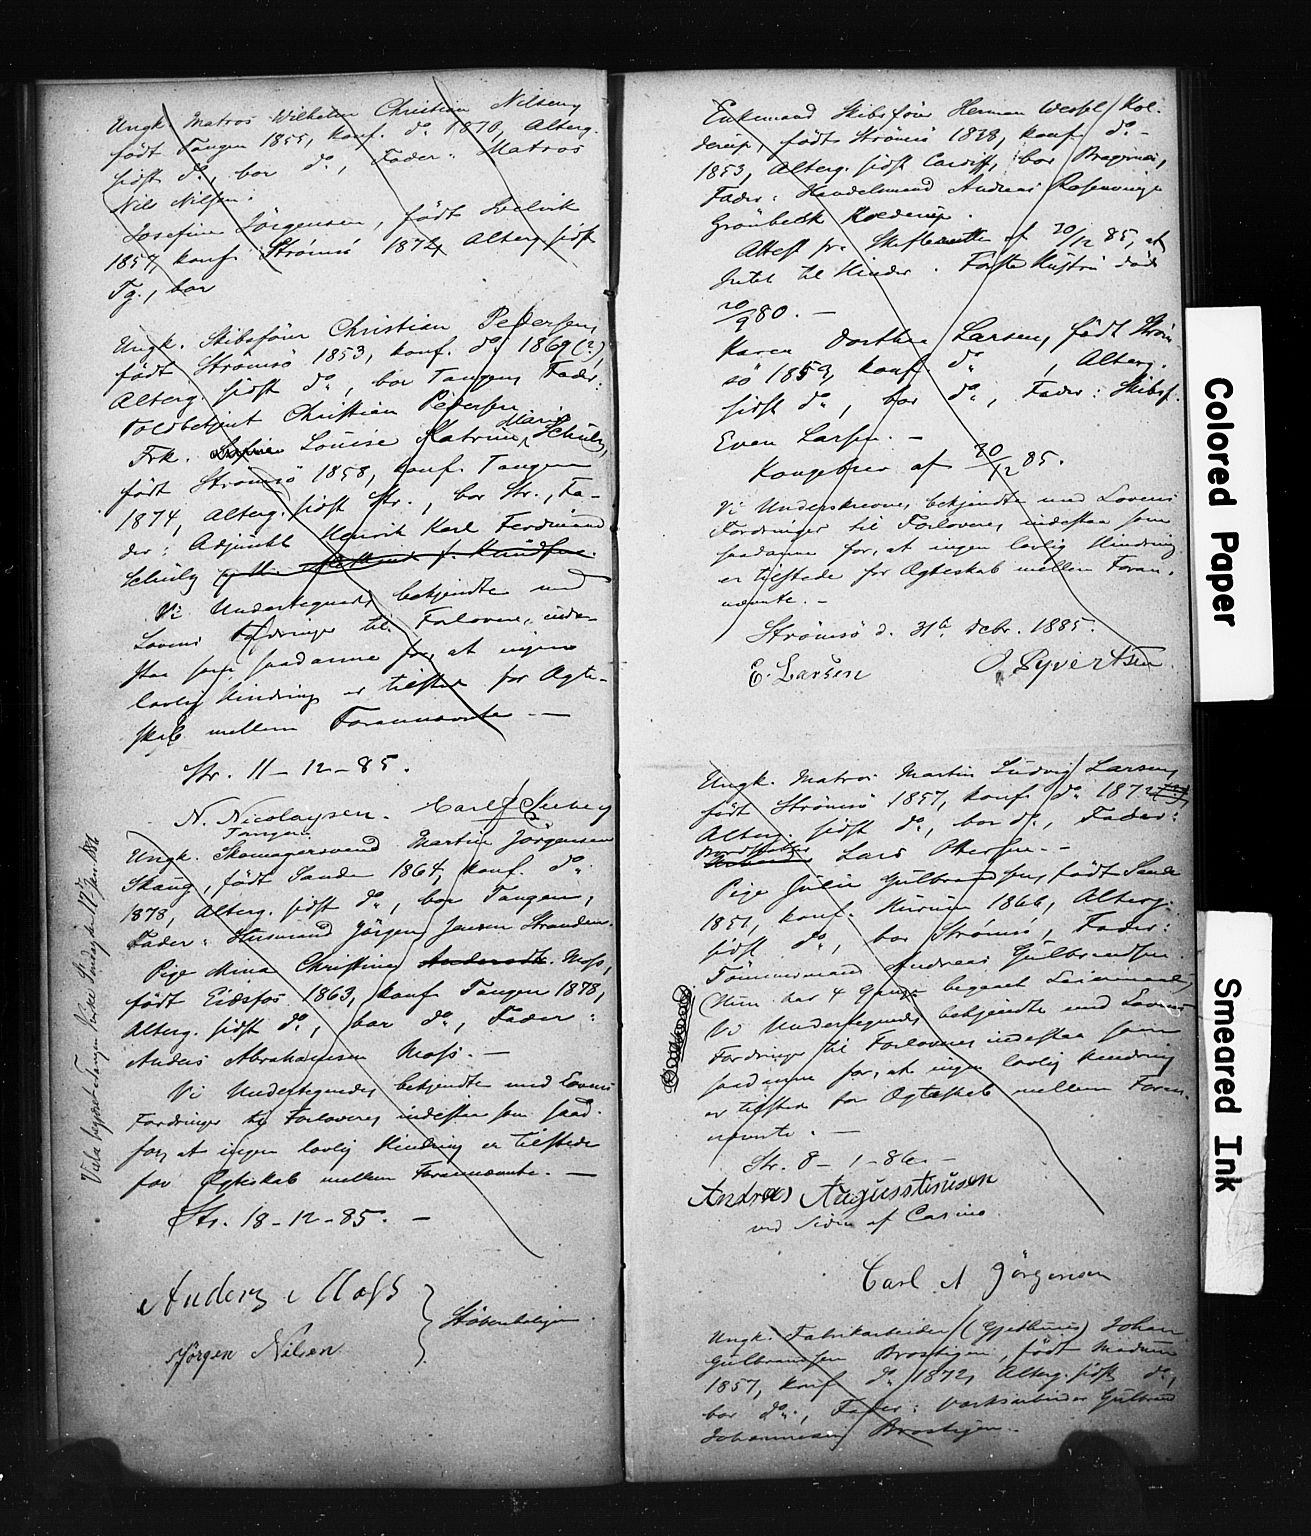 Ungk. Matros Wilhelm Christian Nilsen,
født Tangen 1855, konf. do 1870, Alterg.
sidst do, bor do, Fader: Matros
Nils Nilsen.
Josefine Jörgensen, født Svelvik
1857, konf. Strømsö 1874 Alterg. sidst
Tg., bor
Ungk. Skibsförer Christian Pedersen,
født Strømsö 1853, konf. do 1869(?),
Alterg. sidst do, bor Tangen, Fader:
Toldbetjent Christian Pedersen
Frk. Louise Katrine Marie Schulz,
født Strømsö 1858, konf. Tangen
1874, Alterg. sidst Str., bor Str., Fa-
der: Adjunkt Henrik Karl Ferdinand
Schulz
Vi Undertegnede, bekjendte med
Lovens Fordringer til Forlovere, inde-
staa som saadanne for, at ingen
lovlig Hindring er tilstede for Ægte-
skab mellem Forannævnte. —
Str. 11-12-85.
N. Nicolaysen. Carl Seeberg
Tangen
Ungk. Skomagersvend Martin Jörgensen
Skaug, født Sande 1864, konf. do
1878, Alterg. sidst do, bor Tangen,
Fader: Husmand Jörgen Jensen Stranden.
Pige Mina Christine Moss,
født Eidsfos 1863, konf. Tangen 1878,
Alterg. sidst do, bor do, Fader:
Anders Abrahamsen Moss. —
Vi Undertegnede, bekjendte med Lovens
Fordringer til Forlovere, indestaa som saad.
for, at ingen lovlig Hindring er tilstede
for Ægteskab mellem Forannævnte. —
Str. 18-12-85. —
Anders Moss
Jörgen Nilsen
Vials begjæret Tangen Kirke Söndag den 17de Jan. 1886
Enkemand Skibsförer Herman Wessel Kol-
derup, født Strømsö 1838, konf. do
1853, Alterg. sidst Cardiff, bor Bragernæs,
Fader: Handelsmand Andreas Rosenvinge
Grönbeck Kolderup.
Attest fra Skifteretten af 30/12 85, at
Intet til Hinder. Første Hustru död
20/9 80. —
Karen Dorthea Larsen, født Ström-
sö 1859, konf. do, Alterg.
sidst do, bor do, Fader: Skibsf.
Even Larsen. —
Kongebrev af 30/12 85.
Vi Underskrevne, bekjendte med Lovens
Fordringer til Forlovere, indestaa som
saadanne for, at ingen lovlig Hindring
er tilstede for Ægteskab mellem Foran-
nævnte. —
Strømsö d. 31te Debr. 1885.
E. Larsen O. Syvertsen
Ungk. Matros Martin Ludvig Larsen,
født Strømsö 1857, konf. do 1872,
Alterg. sidst do, bor do, Fader:
Lars Ottersen. —
Pige Julie Gulbrandsen, født Sande
1851, konf. Hurum 1866, Alterg.
sidst do, bor Strømsö, Fader:
Tömmermand Andreas Gulbrandsen.
(Hun har 4 Gange begaaet Leiermaal),
Vi Undertegnede, bekjendte med Lovens
Fordringer til Forlovere, indestaa som
saadanne for, at ingen lovlig Hindring
er tilstede for Ægteskab mellem Foran-
nævnte. —
Str. 8-1-86. —
Andreas Augusstinusen
ved Siden af Casino.
Carl A Jörgensen
Ungk. Fabrikarbeider (Gjedhuus) Johan
Gulbrandsen Brostigen, født Modum
1857, konf. do 1872, Alterg. sidst do,
bor do, Fader: Værksarbeider Gulbrand
Johannesen Brostigen. —
Colored Paper
Smeared Ink